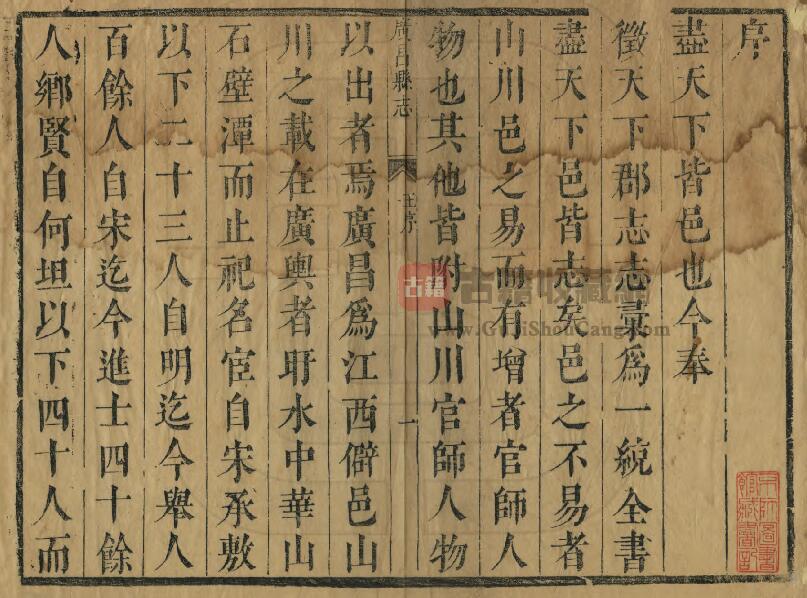 序
盡天下皆邑也今奉
徵天下郡志志彙爲一統全書
盡天下邑皆志矣邑之不易者
山川邑之易而有增者官師人
物也其他皆附山川官師人物
廣昌縣志
序
一
以出者焉廣昌爲江西僻邑山
川之載在廣輿者盱水中華山
石壁潭而止祀名宦自宋承敷
以下二十三人自明迄今舉人
百餘人自宋迄今進士四十餘
人鄉賢自何坦以下四十人而
古籍
古籍收藏網
www.GuJiShouCang.com